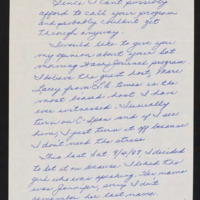 Since I can't possibly
afford to call your program
and probably couldn't get
through anyway.
I would like to give you
my opinion about your Sat.
morning Journal program
I believe the guest host, Marc
Lacey from L.A. times is the
most biased host I have
ever witnessed. I usually
turn on C-Span and if I see
him, I just turn it off because
I don't need the stress.
This last Sat I decided
to let it on because I liked the
girl who was speaking. Her name
was Jennifer, sorry I don't
remember her last name.